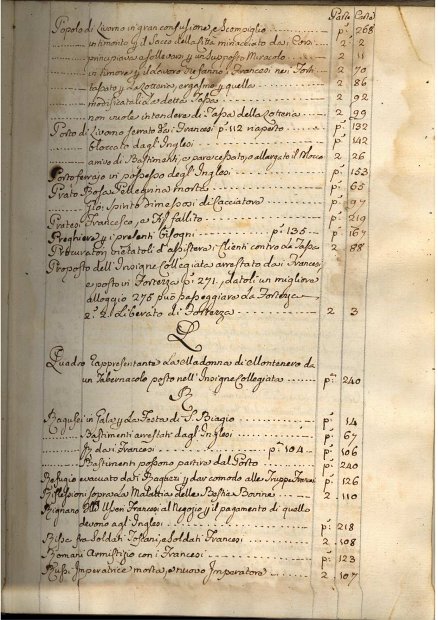 Parte Carte
Popolo di Livorno in gran confusione, e Scompiglio p.ª 268
intimorito p. il Sacco della Città minacciato da i Corsi 2 2
principiava a sollevarsi p. un supposto Miracolo 2 11
in timore p. i Lavori che fanno i Francesi nei Forti 2 70
tassato p. La Lotteria, ergasmo p. quella 2 86
modificata La detta Tassa 2 92
non vuole intendere di Tassa della Lotteria 2 99
Porto di Livorno serrato da i Francesi p.ª 112 riaperto p.ª 132
bloccato dagl' Inglesi p.ª 142
arrivo di Bastimenti, e pare cessato, o allargato il Blocco 2 26
Portoferraio in possesso degl' Inglesi p.ª 153
Prato Rosa Pellegrina morta p.ª 65
Spirito di mesi di Cacciatore p.ª 97
Pratesi Francesco, e fallito p.ª 219
Preghiere p. i presenti Bisogni p.ª 135 p.ª 167
Procuratori d'assistere i Clienti contro La Tassa 2 88
Proposto dell' Insigne Collegiata arrestato da i Francesi,
e posto in Fortezza p.ª 271, datoli un migliore
alloggio 275 può passeggiare La Fortezza
2.ª 2. Liberato di Fortezza 2 3
Q
Quadro rappresentante La Madonna di Montenero da
un Tabernacolo posto nell' Insigne Collegiata p.ª 240
R
Ragusei in Gala p. La Festa di S. Biagio p.ª 14
Bastimenti arrestati dagl' Inglesi p.ª 67
da i Francesi p.ª 104 p.ª 106
Bastimenti possono partire dal Porto p.ª 240
Refugio evacuato dai Ragazzi p. dar comodo alle Truppe Francesi p.ª 126
Riflessioni sopra La Malattia delle Bestie Bovine 2 110
Rignano Francesi al Negozio p. il pagamento di quello
devono agl' Inglesi p.ª 218
Risse fra Soldati Toscani, e Soldati Francesi 2 108
Romani Armistizio con i Francesi p.ª 123
Russi Imperatrice morta, e nuovo Imperatore 2 107